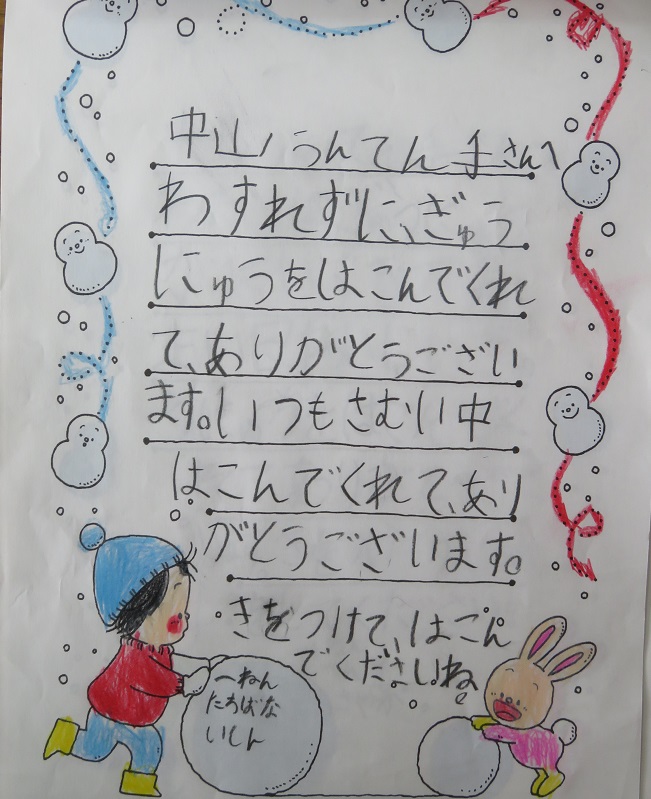 中山うんてん手さんへ
わすれずに、ぎゅう
にゅうをはこんでくれ
て、ありがとうござい
ます。いつもさむい中
はこんでくれて、あり
がとうございます。
きをつけて、はこん
でくださいね。
一ねん
たちばな
いしん